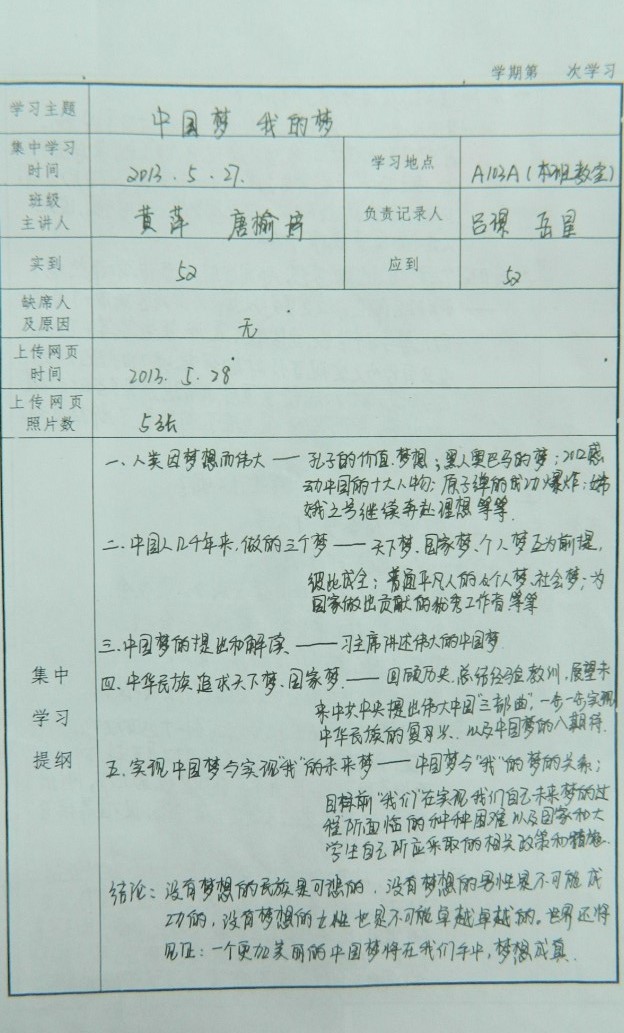 学期第 次学习
学习主题 中国梦 我的梦
集中学习时间 2013.5.27. 学习地点 A103A(本班教室)
班级主讲人 黄萍 唐榆 负责记录人 吕 岳星
实到 52 应到 52
缺席人及原因 无
上传网页时间 2013.5.28
上传网页照片数 5张
集中学习提纲
一、人类因梦想而伟大 —— 孔子的价值.梦想;黑人奥巴马的梦;2012感
动中国的十大人物;原子弹的成功爆炸;嫦
娥之号继续奔赴理想等等.
二.中国人几千年来,做的三个梦 —— 天下梦、国家梦、个人梦互为前提,
彼此成全;普通平凡人的个人梦、社会梦;为
国家做出贡献的优秀工作者等等
三.中国梦的提出和解读、——习主席讲述伟大的中国梦.
四.中华民族追求天下梦、国家梦.—— 回顾历史,总结经验教训,展望未
来中共中央提出伟大中国"三部曲",一步一步实现
中华民族的复兴、以及中国梦的八期待.
五.实现中国梦与实现"我"的未来梦 —— 中国梦与"我"的梦的关系;
目前"我们"在实现我们自己未来梦的过
程所面临的种种困难以及国家和大
学生自己所应采取的相关政策和措施.
结论:没有梦想的民族是可悲的,没有梦想的男性是不可能成
功的,没有梦想的女性也是不可能卓越卓越的。世界还将
见证:一个更加美丽的中国梦将在我们手中,梦想成真.